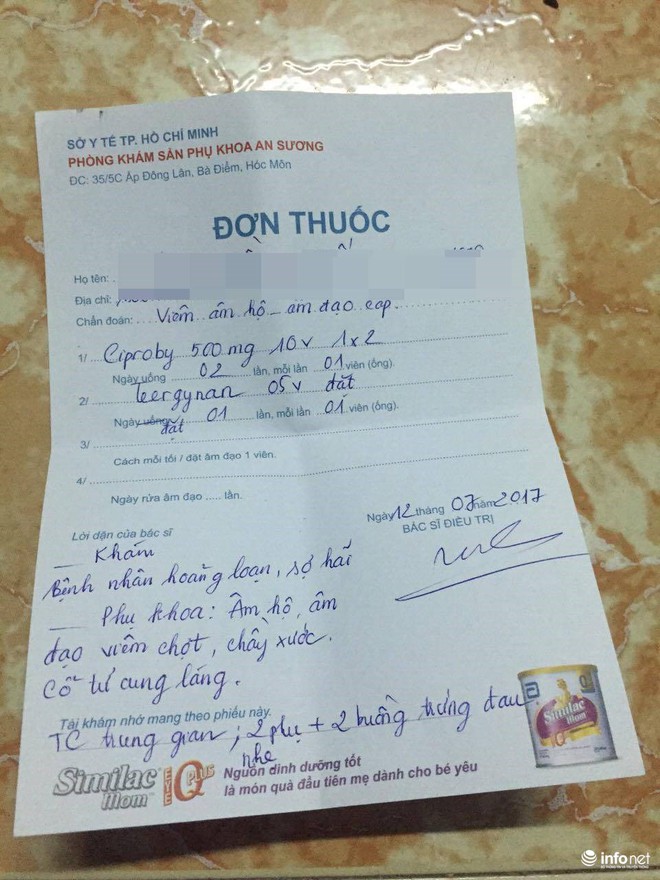 SỞ Y TẾ TP. HỒ CHÍ MINH
PHÒNG KHÁM SẢN PHỤ KHOA AN SƯƠNG
ĐC: 35/5C Ấp Đông Lân, Bà Điểm, Hóc Môn
ĐƠN THUỐC
Họ tên:
Địa chỉ:
Chẩn đoán: Viêm âm hộ - âm đạo cấp.
1/ Ciproby 500mg 10v 1x2
Ngày uống 02 lần, mỗi lần 01 viên (ống).
2/ teergynan 05v đặt
Ngày uống đặt 01 lần, mỗi lần 01 viên (ống).
3/
Cách mỗi tối / đặt âm đạo 1 viên.
4/
Ngày rửa âm đạo ..... lần.
Ngày 12 tháng 07 năm 2017
BÁC SĨ ĐIỀU TRỊ
Lời dặn của bác sĩ
— Khám
Bệnh nhân hoảng loạn, sợ hãi
— Phụ khoa: Âm hộ, âm
đạo viêm chợt, chầy xước.
Cổ tử cung láng.
Tái khám nhớ mang theo phiếu này.
TC trung gian; 2 phụ + 2 buồng trứng đau
nhẹ
Similac Mom IQ PLUS
Nguồn dinh dưỡng tốt
là món quà đầu tiên mẹ dành cho bé yêu
Similac
Mom
IQ
infonet